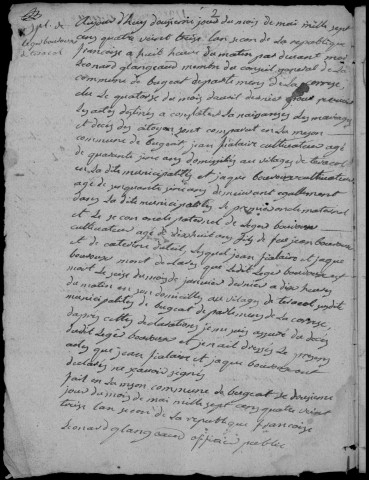 2
Aujourd'huy douzieme jour du mois de mai mille sept
cens quatre vint treise l'an segon de la republique
françoise a huit heure du matin par devant moi
Leonard glangeaud membre du conseil general de la
commune de bugeat departemens de la correse,
elu le quatorse du mois davril dernier pour recevoir
les actes destinés a constater la naissances les mariages
et décès des citoyen sont comparut en la meson
commune de bugeat, jean fialaire cultivateur agé
de quarante ans domiciliés au vilages de
en la dite municipallité et jaque bouveres cultivateur
agé de ans demeurant egallement
dans la dite municipallité le premier oncle maternel
et le segon oncle paternel de Legé bouveres
cultivateur agé de dixhuit ans fils de feu jean bouveres
et de caterine lequel jean fialaire et jaque
bouveres mont declarés que ledit Legé bouveres est
mort le seise du mois de janvier dernier a dix heures
du matin en son domicille au vilages de susdit
municipalités de bugeat departemens de la correse,
dapres cette declaration je me suis assuré du décès
dudit Legé bouveres et jen ait dressés le presens
actes que jean fialaire et jaque bouveres ont
declarés ne savoir signés
fait en la meson commune de bugeat le douzieme
jour du mois de mai mille sept cens quatre vint
treise l'an segon de la republique françoise
Leonard glangeaud officié public